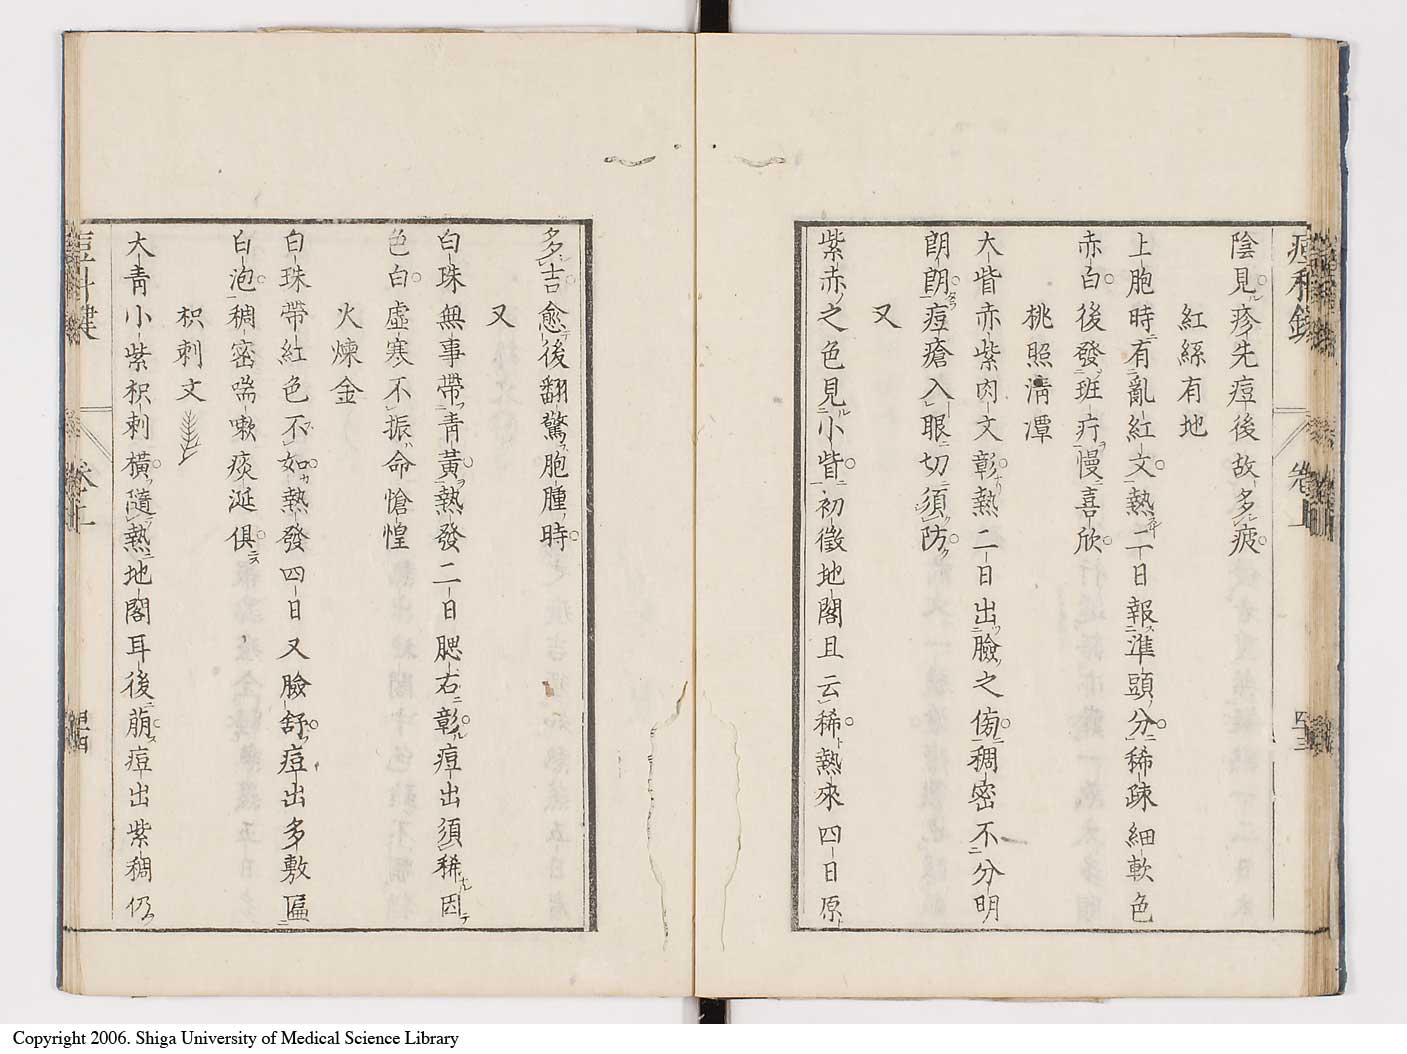 陰見疹先痘後故多疲
紅絲有地
上胞時有亂紅文熱二日報準頭分稀疎細軟色
赤白後發班疔慢喜欣
桃照淸潭
大眥赤紫肉文彰熱二日出臉之傍稠密不分明
朗朗痘瘡入眼切須防
又
紫赤之色見小眥初徵地閣且云稀熱來四日原
多吉愈後翻驚胞腫時
又
白珠無事帶青黃熱發二日腮右彰痘出須稀因
色白虛寒不振命愴惶
火煉金
白珠帶紅色不如熱發四日又臉舒痘出多敷匾
白泡稠密喘嗽痰涎俱
枳刺文
大靑小紫枳刺橫隨熱地閣耳後萠痘出紫稠仍
卷上
四十三
四十四
Copyright 2006. Shiga University of Medical Science Library